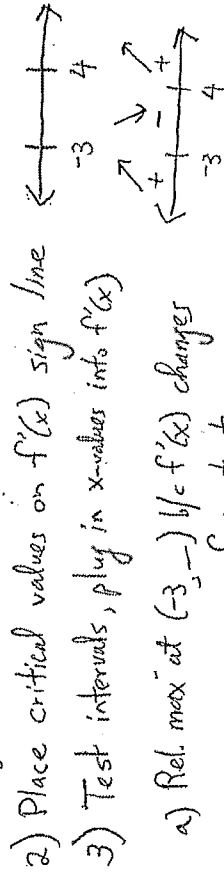 2) Place critical values on f'(x) sign line
-3 4
3) Test intervals, plug in x-values into f'(x)
+ - +
-3 4
a) Rel. max at (-3, _) b/c f'(x) changes